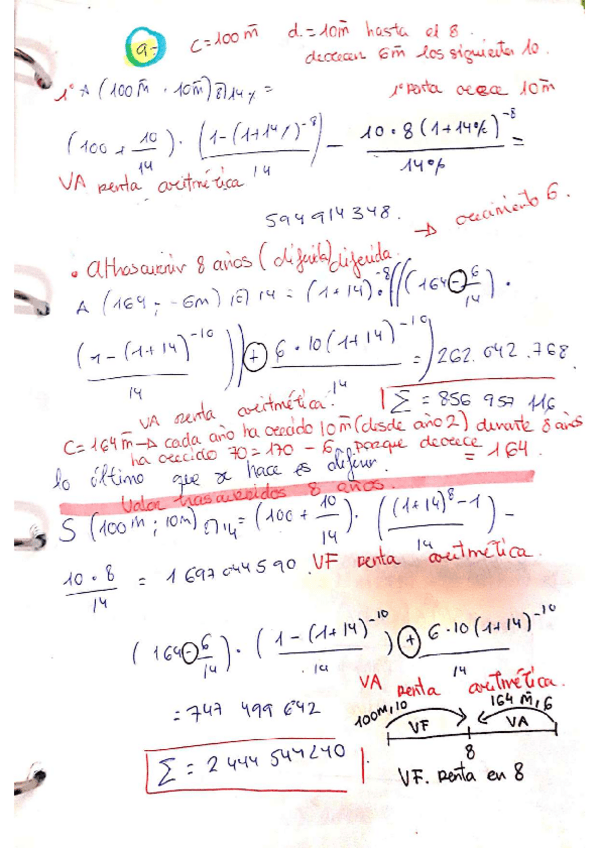 a-
C=100 m̄ d.=10m̄ hasta el 8.
decrecen 6m̄ los siguientes 10.
1º A (100m̄ · 10m̄) 8⌉14% = 1º renta crece 10m̄
(100 + 10/14) · (1-(1+14%)^-8)/14 - 10·8(1+14%)^-8/14% =
VA renta aritmética
594 914 348. → crecimiento 6.
• atrasarlo 8 años (diferida) diferida.
A (164 ; -6m) 10⌉14 = (1+14)^-8 · ((164 - 6/14) ·
(1-(1+14)^-10)/14) + 6·10(1+14)^-10/14) = 262.042.768.
VA renta aritmética. Σ = 856 957 116
C=164m̄ → cada año ha crecido 10m̄ (desde año 2) durante 8 años
ha crecido 70=170 - 6 porque decrece = 164.
lo último que se hace es diferir.
Valor trascurridos 8 años.
S (100m ; 10m) 8⌉14 = (100 + 10/14) · ((1+14)^8 - 1)/14 -
10·8/14 = 1 697 044 590. VF renta aritmética.
(164 - 6/14) · (1-(1+14)^-10)/14) + 6·10(1+14)^-10/14
VA renta aritmética.
= 747 499 642
100m,10 164 m̄,6
VF VA
8
Σ = 2 444 544 240
VF. renta en 8